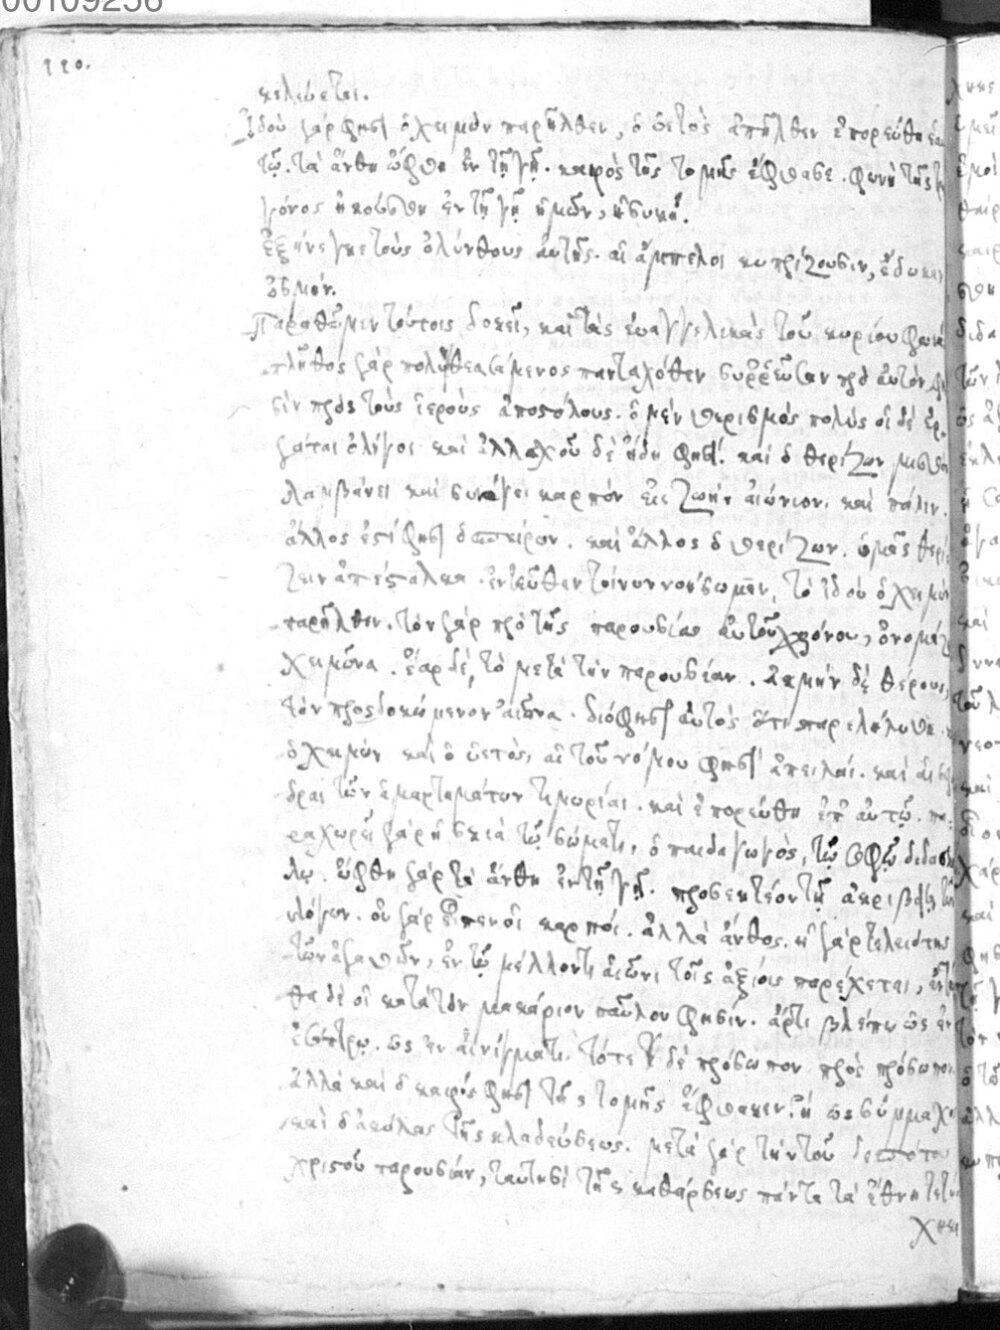 00109256
110.
κελεύεται.
Ἰδοὺ γάρ φησὶ ὁ χειμὼν παρῆλθεν, ὁ ὑετὸς ἀπῆλθεν ἐπορεύθη ἑαυ
τῷ. τὰ ἄνθη ὤφθη ἐν τῇ γῇ. καιρὸς τῆς τομῆς ἔφθασε. φωνὴ τῆς
γόνος ἠκούσθη ἐν τῇ γῇ ἡμῶν, ἡ συκῆ.
ἐξήνεγκε τοὺς ὀλύνθους αὐτῆς. αἱ ἄμπελοι κυπρίζουσιν, ἔδωκαν
ὀσμήν.
Παραθῶμεν τούτοις δοκεῖ, καὶ τὰς εὐαγγελικὰς τοῦ κυρίου φωνὰ
πλῆθος γάρ πολὺ θεασάμενος πανταχόθεν συῤῥεῦσαν πρὸ αὐτὸν φη
σὶν πρὸς τοὺς ἱεροὺς ἀποστόλους. ὁ μὲν θερισμὸς πολύς οἱ δὲ ἐρ
γάται ὀλίγοι καὶ ἀλλαχοῦ δὲ ἤδη φησὶ. καὶ ὁ θερίζων μισθὸν
λαμβάνει καὶ συνάγει καρπὸν εἰς ζωὴν αἰώνιον. καὶ πάλιν.
ἄλλος ἐστί φησὶ ὁ σπείρων. καὶ ἄλλος ὁ θερίζων. ὑμᾶς θερί
ζειν ἀπέσταλκα. ἐντεῦθεν τοίνυν νοήσωμεν, τὸ ἰδοὺ ὁ χειμὼν
παρῆλθεν. τὸν γάρ πρὸ τῆς παρουσίας αὐτοῦ χρόνου, ὀνομάζ
χειμῶνα. ἔαρ δὲ, τὸ μετὰ τὴν παρουσίαν. ἀκμὴν δὲ θέρους,
τὸν προσδοκώμενον αἰῶνα. διό φησὶ αὐτὸς ὅτι παρελήλυθε
ὁ χειμὼν καὶ ὁ ὑετὸς, αἱ τοῦ νόμου φησὶ ἀπειλαί. καὶ αἱ
δραὶ τῶν ἁμαρτημάτων τιμωρίαι. καὶ ἐπορεύθη ἐπ' αὐτῷ. πα
ραχωρεῖ γάρ ἡ σκιὰ τῷ σώματι, ὁ παιδαγωγὸς, τῷ σοφῷ διδασκά
λῳ. ὤφθη γάρ τὰ ἄνθη ἐν τῇ γῇ. προσεκτέον τῇ ἀκριβείᾳ τῶν
λόγων. οὐ γάρ εἶπεν οἱ καρποί. ἀλλὰ ἄνθος. ἡ γάρ τελειότης
τῶν ἀγαθῶν, ἐν τῷ μέλλοντι αἰῶνι τοῖς ἀξίοις παρέχεται, ἐνταῦ
θα δὲ οἱ κατὰ τὸν μακάριον παῦλον φησὶν. ἄρτι βλέπω ὡς ἐν
ἐσόπτρῳ. ὡς ἐν αἰνίγματι. τότε δὲ πρόσωπον πρὸς πρόσωπον.
ἀλλὰ καὶ ὁ καιρός φησὶ τῆς τομῆς ἔφθακεν. ἢ ὡς σύμμαχο
καὶ ὁ ἀκύλας τῆς κλαδεύσεως. μετὰ γάρ τὴν τοῦ δεσπότου
χριστοῦ παρουσίαν, ταυτησὶ τῆς καθάρσεως πάντα τὰ ἔθνη τετύ
χηκε